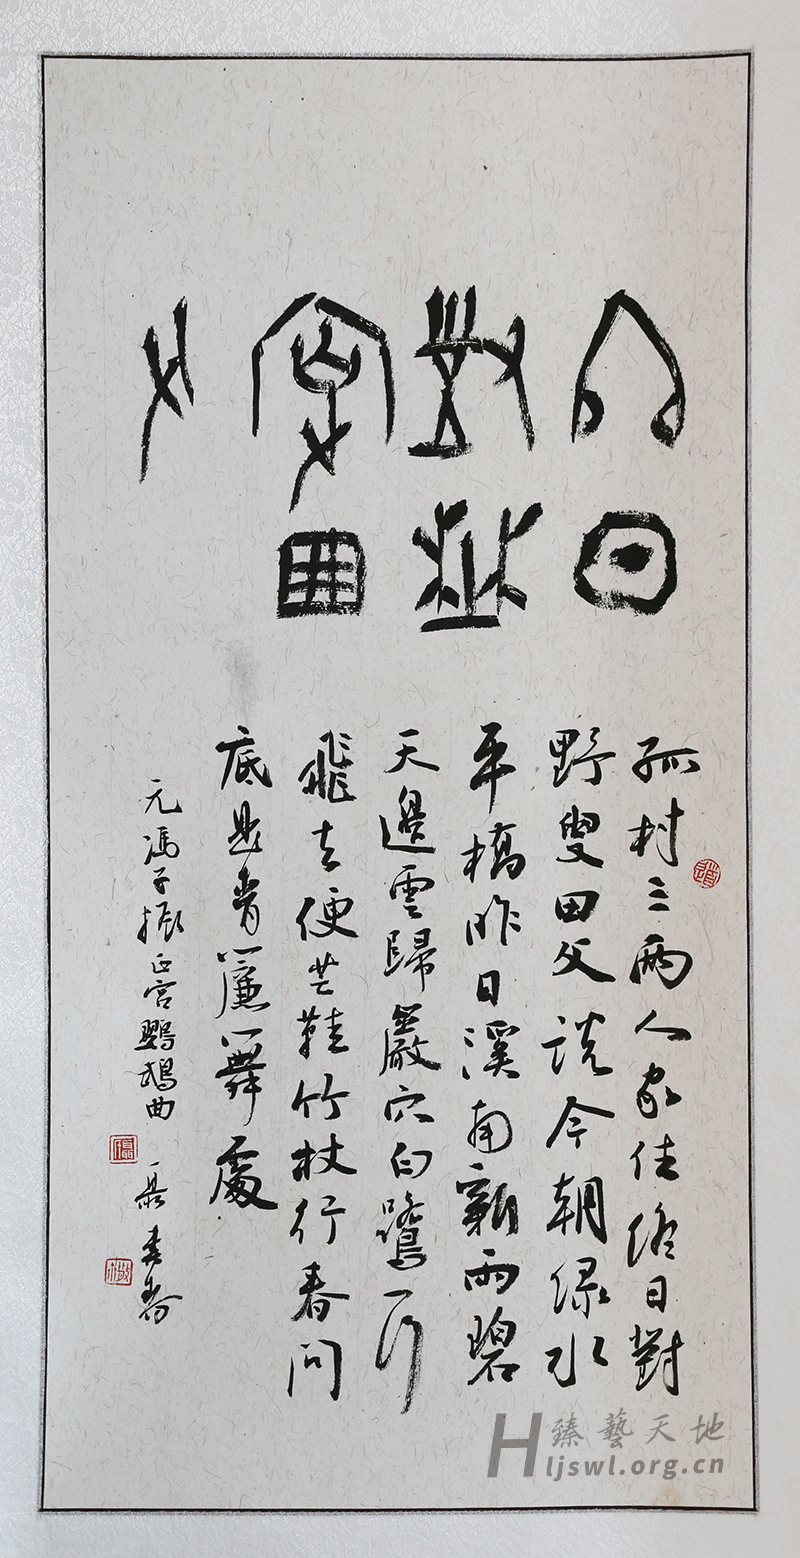 終日
對埜
叟田
父
孤村三兩人家住終日對
野叟田父說今朝綠水
平橋昨日溪南新雨碧
天邊雲歸巖穴白鷺一行
飛去便芒鞋竹杖行春問
底是青簾舞處
元馮子振正宮鸚鵡曲 聶
臻藝天地
Hljswl.org.cn